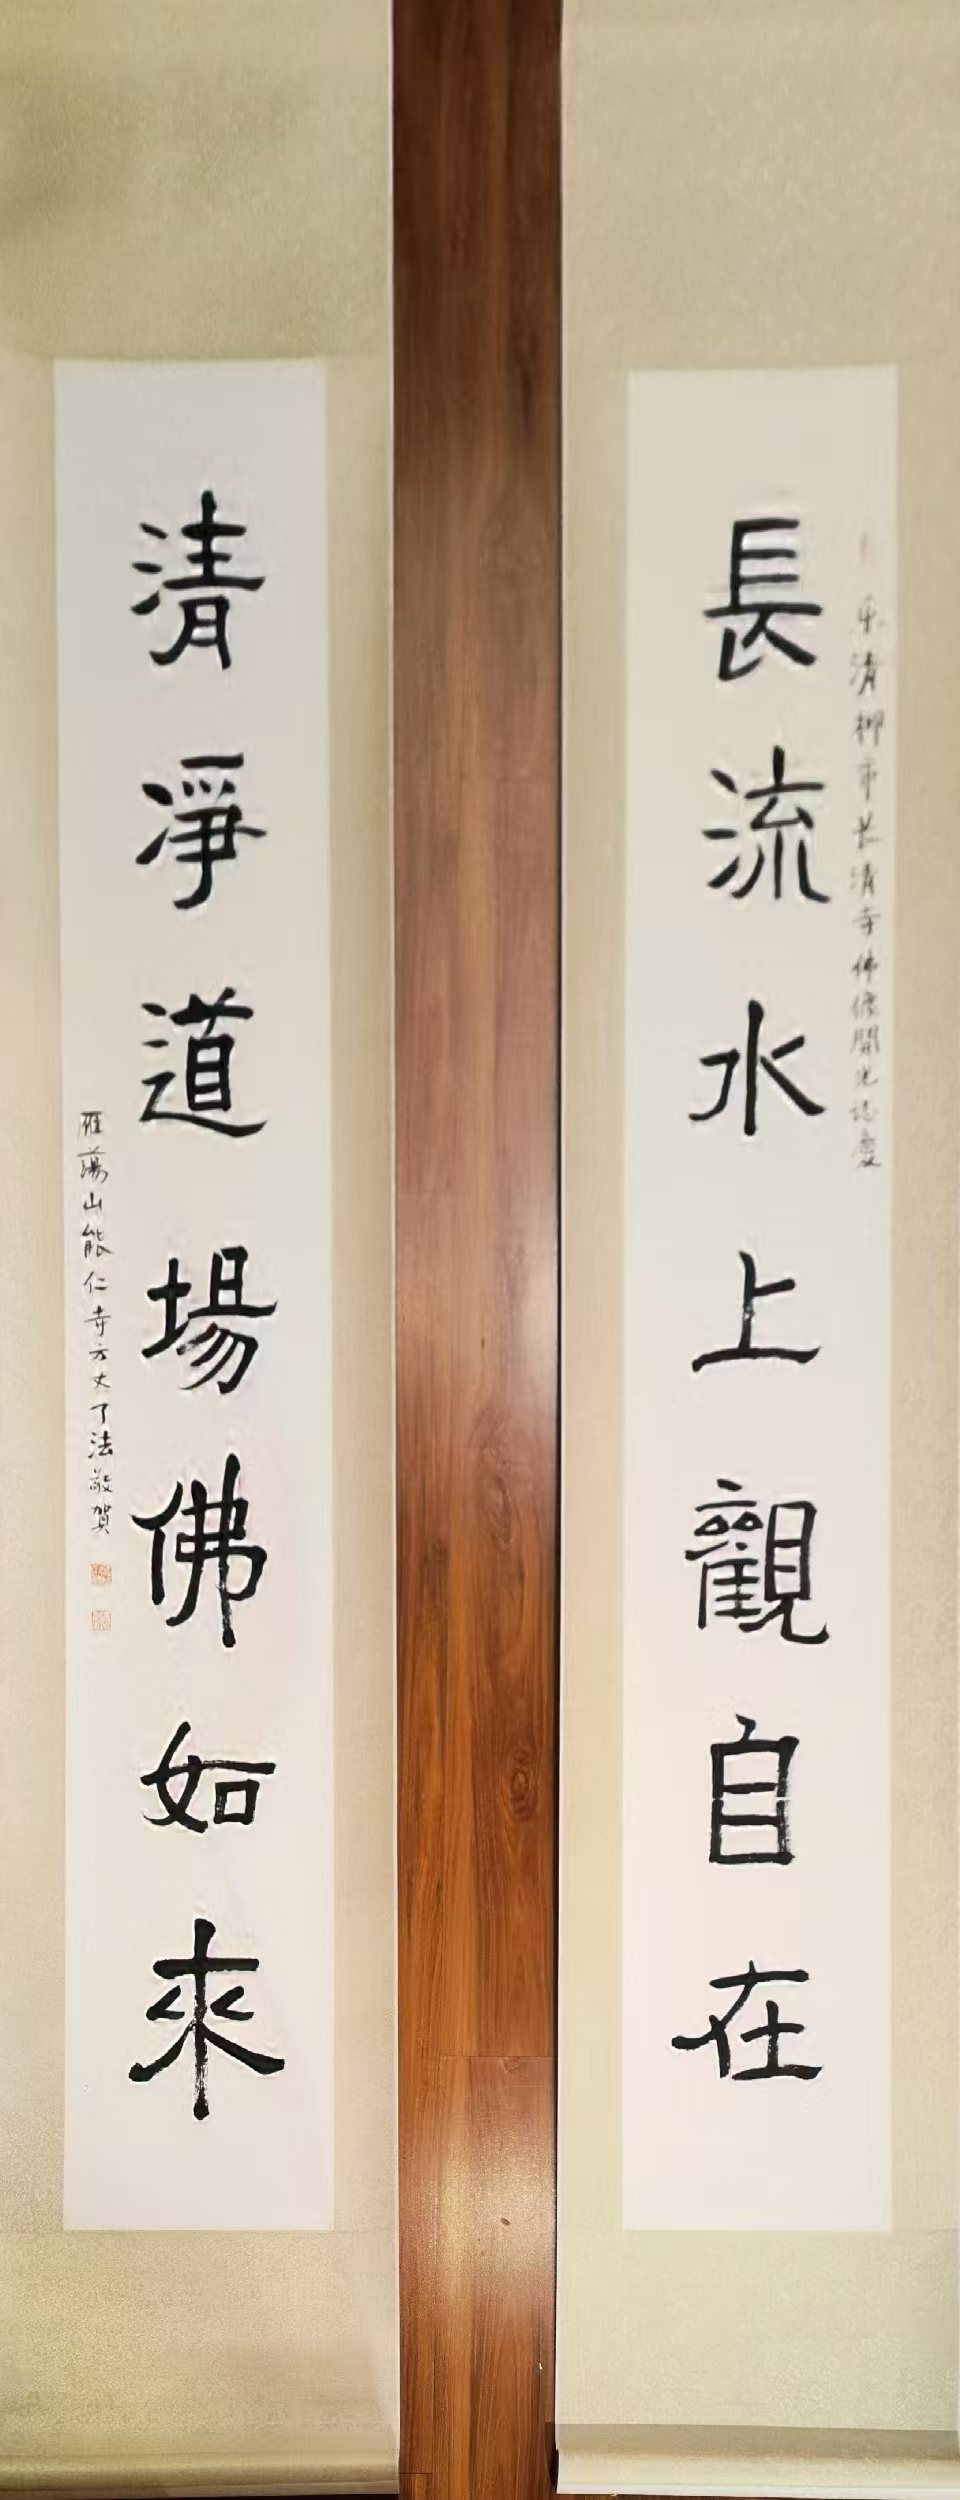 乐清柳市长清寺佛像開光誌慶
長流水上觀自在
清淨道場佛如來
雁蕩山能仁寺方丈了法敬賀